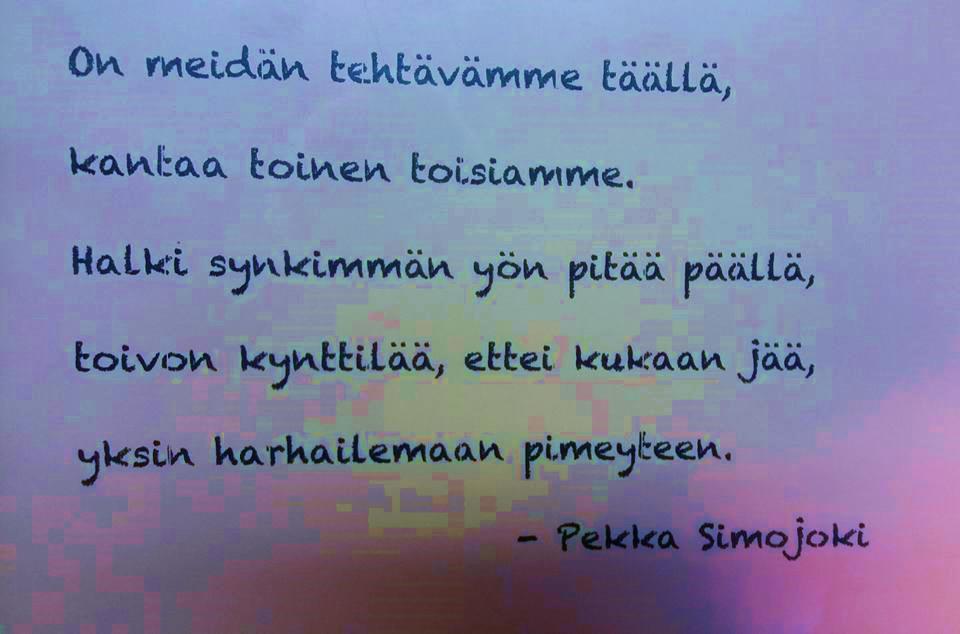 On meidän tehtävämme täällä,
kantaa toinen toisiamme.
Halki synkimmän yön pitää päällä,
toivon kynttilää, ettei kukaan jää,
yksin harhailemaan pimeyteen.
- Pekka Simojoki